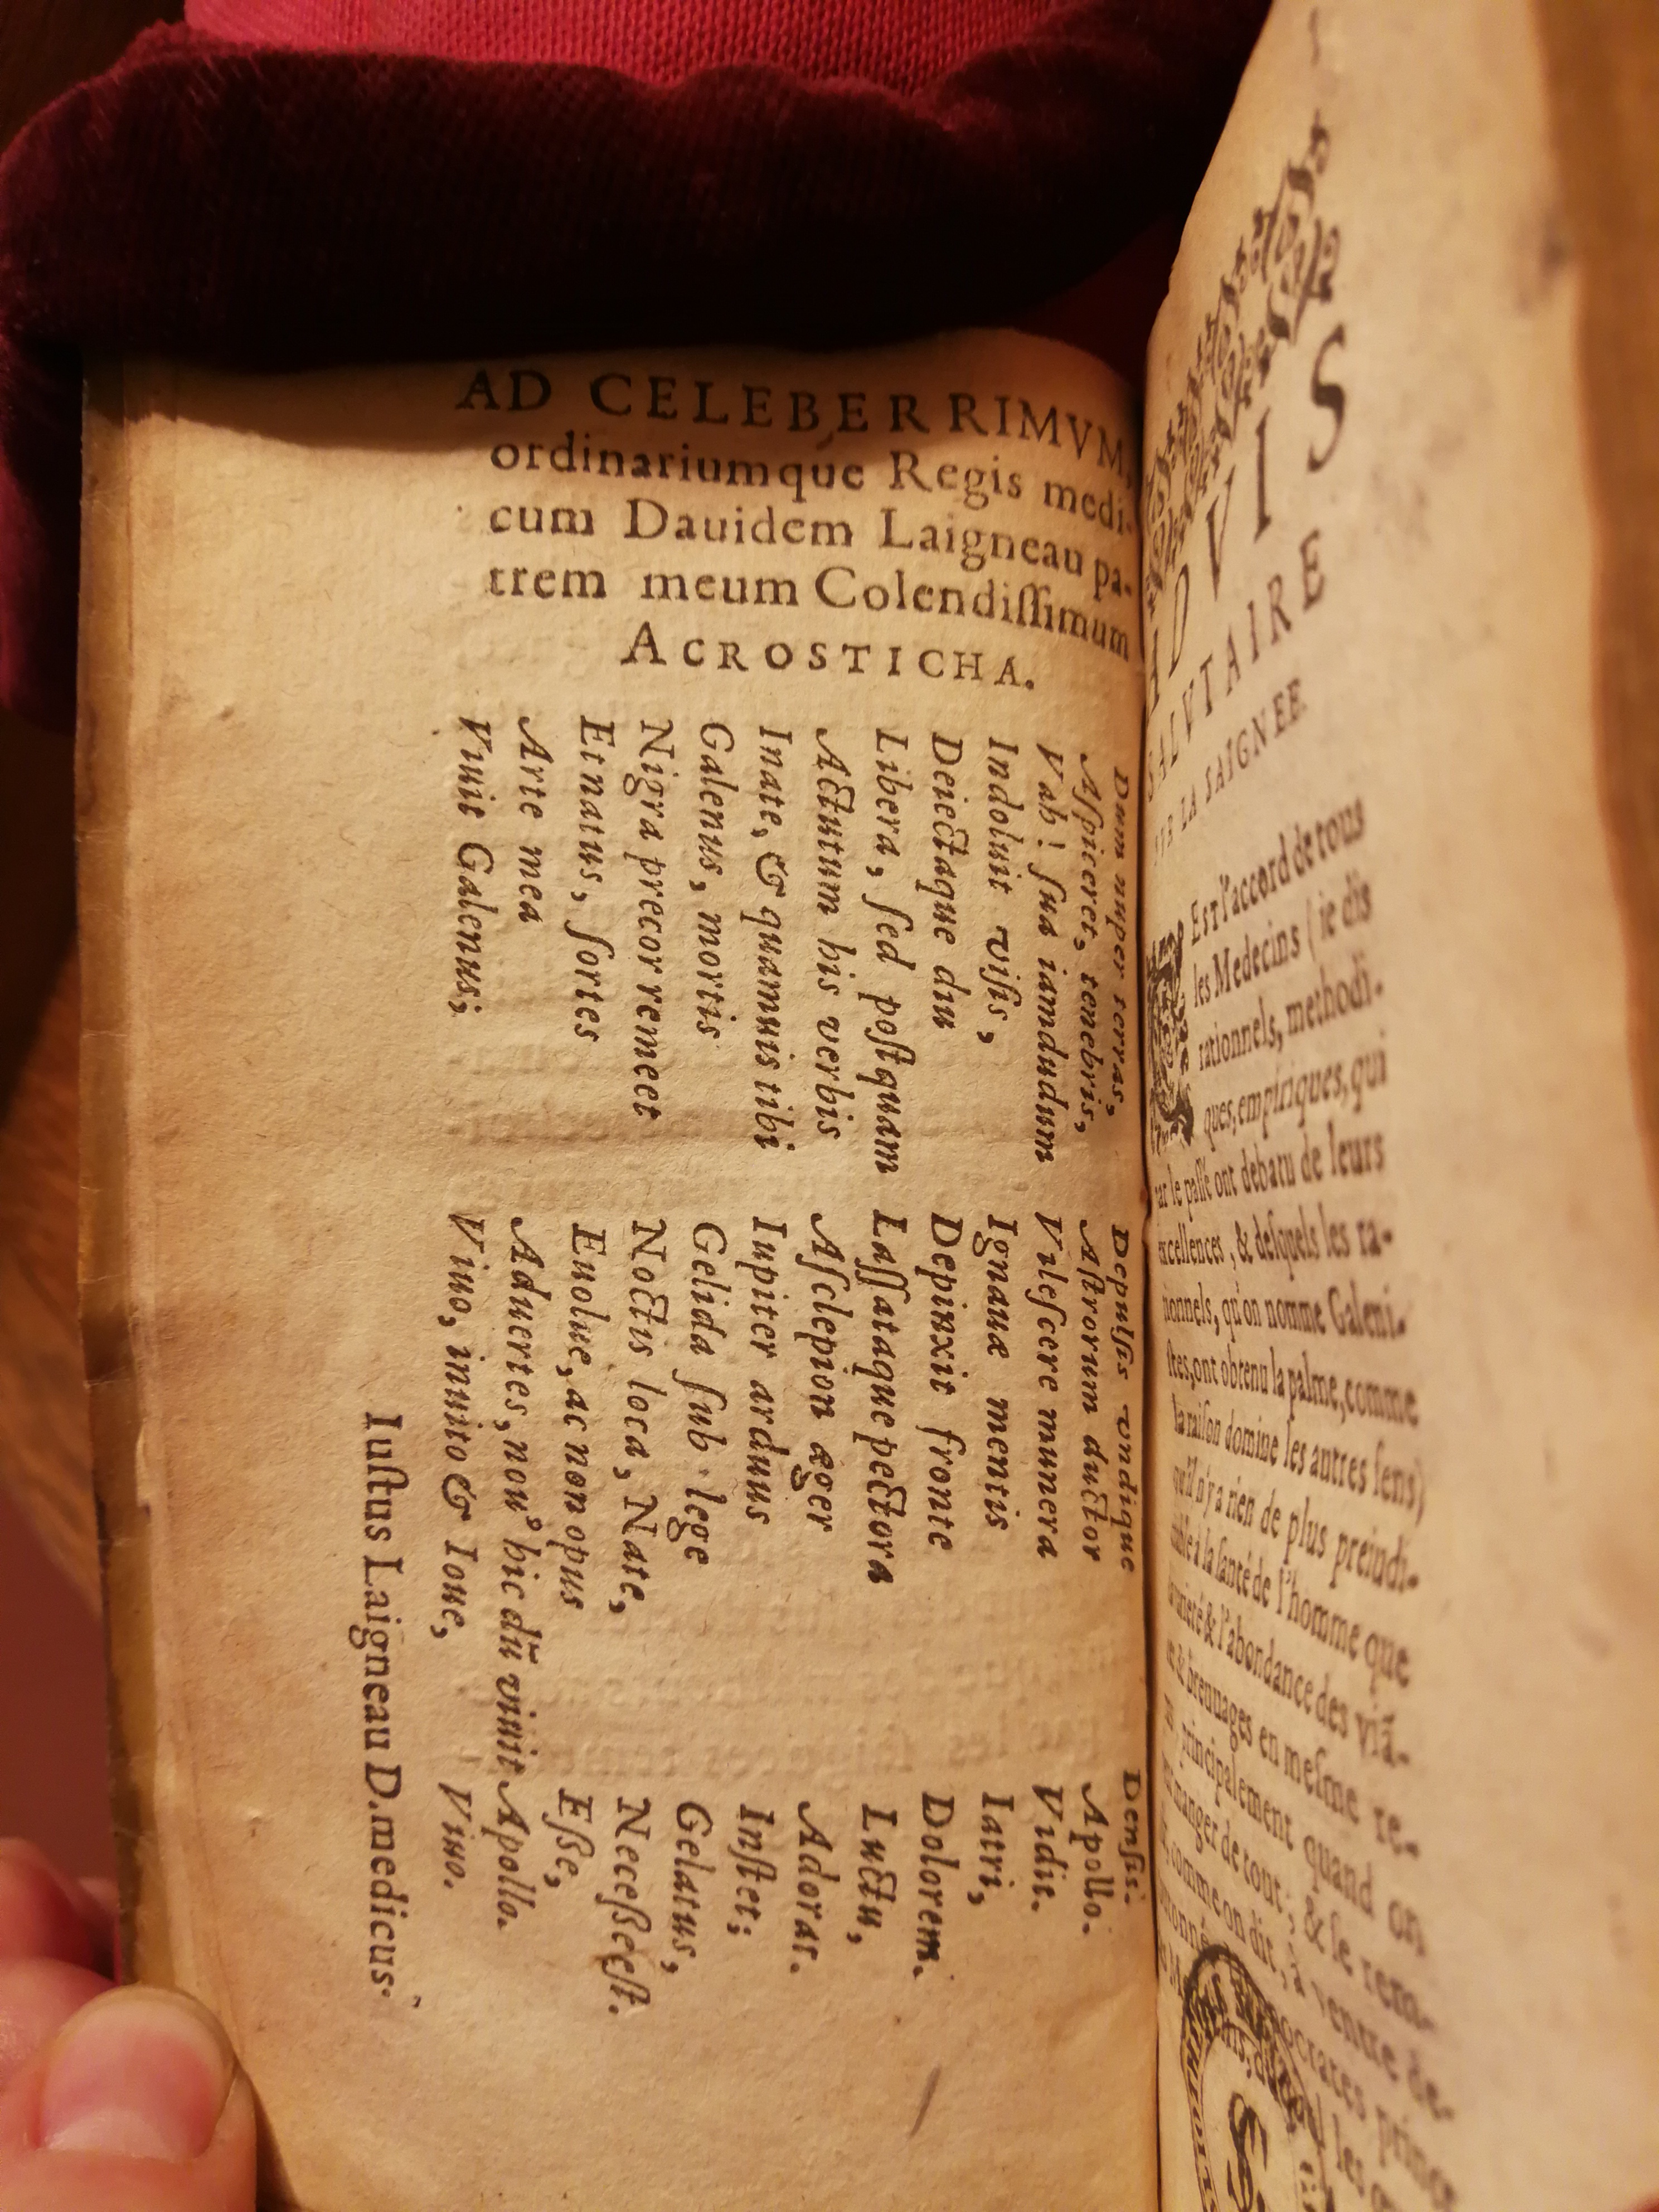 AD CELEBERRIMVM,
ordinariumque Regis medi-
cum Dauidem Laigneau pa-
trem meum Colendiſſimum
ACROSTICHA.
Dum nuper terras, Depulſis vndique Denſis.
Aſpiceret, tenebris, Aſtrorum ductor Apollo.
Vah! ſua iamdudum Vileſcere munera Vidit.
Indoluit viſis, Ignauæ mentis Iatri,
Deiectaque diu Depinxit fronte Dolorem.
Libera, ſed poſtquam Laſſataque pectora Luctu,
Actutum his verbis Aſclepion æger Adorat.
Inate, & quamuis tibi Iupiter arduus Inſtet;
Galenus, mortis Gelida ſub lege Gelatus,
Nigra precor remeet Noctis loca, Nate, Neceßeeſt.
Etnatus, ſortes Euolue, ac non opus Eße,
Arte mea Aduertes, nouꝰ hic dũ viuit Apollo.
Viuit Galenus; Viuo, inuito & Ioue, Viuo.
Iuſtus Laigneau D.medicus.
VIS
SALVTAIRE
LA SAIGNEE
Eſt l'accord de tous
les Medecins ( ie dis
rationnels, methodi-
ques, empiriques, qui
le paſſé ont debatu de leurs
excellences, & deſquels les ra-
tionnels, qu'on nomme Galeni-
ſtes, ont obtenu la palme, comme
la raiſon domine les autres ſens)
qu'il n'y a rien de plus preiudi-
à la ſanté de l'homme que
& l'abondance des viã-
breuuages en meſme re-
principalement quand on
manger de tout, & ſe rem-
comme on dit, à ventre de-